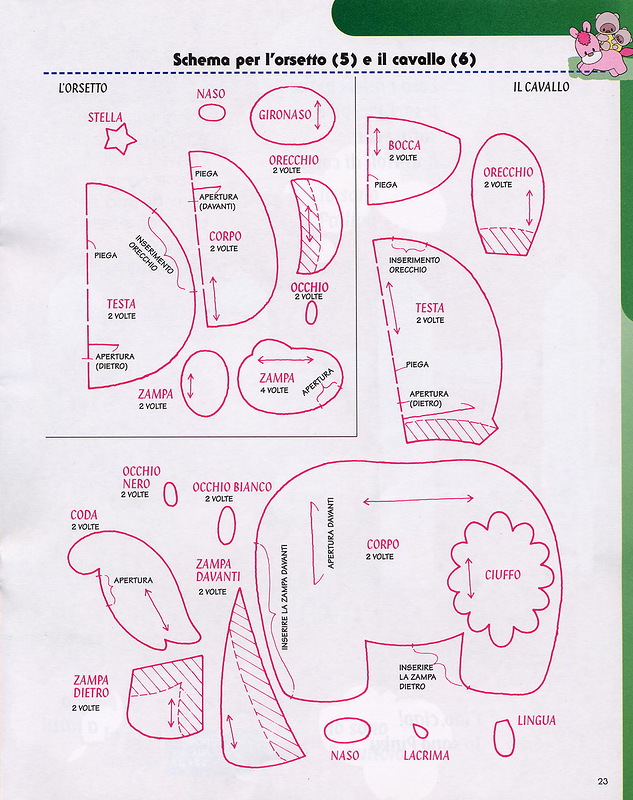 Schema per l'orsetto (5) e il cavallo (6)
L'ORSETTO
STELLA
NASO
GIRONASO
ORECCHIO
2 VOLTE
PIEGA
APERTURA
(DAVANTI)
CORPO
2 VOLTE
INSERIMENTO
ORECCHIO
PIEGA
TESTA
2 VOLTE
APERTURA
(DIETRO)
OCCHIO
2 VOLTE
ZAMPA
2 VOLTE
ZAMPA
4 VOLTE
APERTURA
IL CAVALLO
BOCCA
2 VOLTE
PIEGA
ORECCHIO
2 VOLTE
INSERIMENTO
ORECCHIO
TESTA
2 VOLTE
PIEGA
APERTURA
(DIETRO)
OCCHIO
NERO
2 VOLTE
OCCHIO BIANCO
2 VOLTE
CODA
2 VOLTE
APERTURA
ZAMPA
DAVANTI
2 VOLTE
INSERIRE LA ZAMPA DAVANTI
APERTURA DAVANTI
CORPO
2 VOLTE
CIUFFO
ZAMPA
DIETRO
2 VOLTE
INSERIRE
LA ZAMPA
DIETRO
NASO
LACRIMA
LINGUA
23